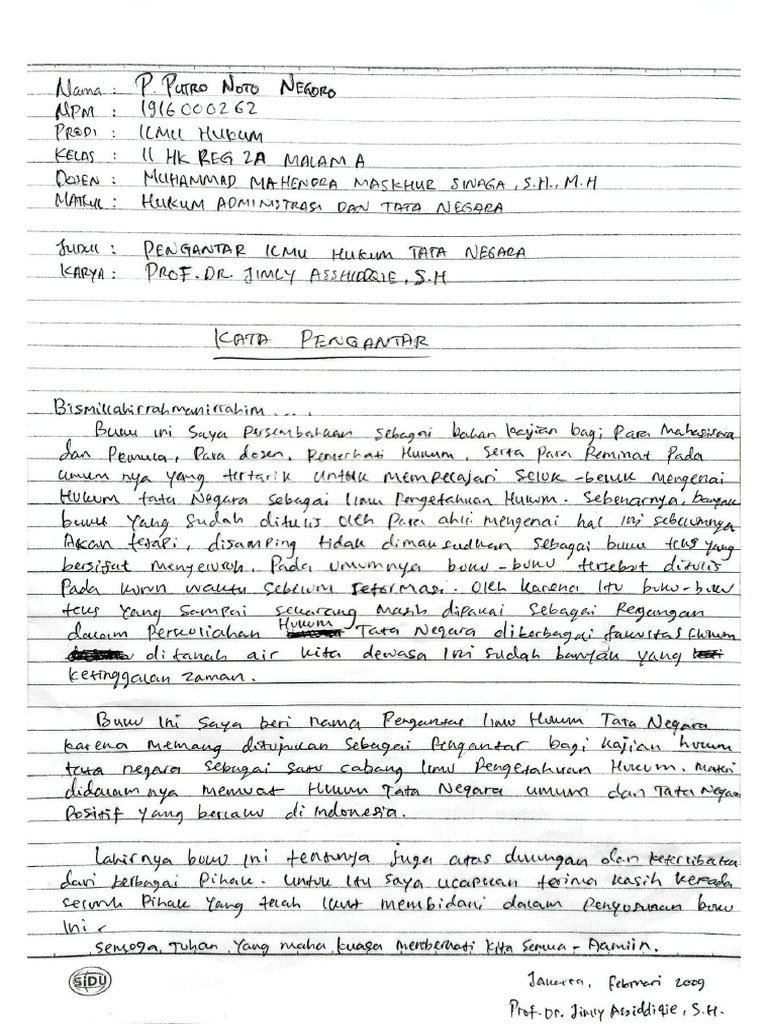 Nama : P. PUTRO NOTO NEGORO
NPM : 1916000262
PRODI : ILMU HUKUM
KELAS : II HK REG 2A MALAM A
DOSEN : MUHAMMAD MAHENDRA MASKHUR SINAGA, S.H., M.H
MATKUL : HUKUM ADMINISTRASI DAN TATA NEGARA
JUDUL : PENGANTAR ILMU HUKUM TATA NEGARA
KARYA : PROF. DR. JIMLY ASSHIDDIQIE, S.H
KATA PENGANTAR
Bismillahirrahmanirrahim....
Buku ini saya persembahkan sebagai bahan kajian bagi para Mahasiswa
dan Pemula, Para dosen, Pemerhati Hukum, serta para Peminat pada
umumnya yang tertarik untuk mempelajari seluk-beluk mengenai
Hukum tata Negara sebagai Ilmu Pengetahuan Hukum. Sebenarnya, banyak
buku yang sudah ditulis oleh para ahli mengenai hal ini sebelumnya
Akan tetapi, disamping tidak dimaksudkan sebagai buku teks yang
bersifat menyeluruh. Pada umumnya buku-buku tersebut ditulis
pada kurun waktu sebelum reformasi. Oleh karena itu buku-buku
teks yang sampai sekarang masih dipakai sebagai Pegangan
dalam Perkuliahan Hukum Tata Negara diberbagai fakultas Hukum
ditanah air kita dewasa ini sudah banyak yang
ketinggalan zaman.
Buku ini saya beri nama Pengantar Ilmu Hukum Tata Negara
karena memang ditujukan sebagai Pengantar bagi kajian hukum
tata negara sebagai satu cabang Ilmu Pengetahuan Hukum. Materi
didalamnya memuat Hukum Tata Negara umum dan Tata Negara
Positif yang berlaku di Indonesia.
Lahirnya buku ini tentunya juga atas dukungan dan keterlibatan
dari berbagai Pihak. Untuk itu saya ucapkan terima kasih kepada
seluruh Pihak yang telah ikut membidani dalam penyusunan buku
ini.
semoga, Tuhan Yang maha kuasa memberkati kita semua - Aamiin.
SiDU
Jakarta, Februari 2009
Prof. Dr. Jimly Assiddiqie, S.H.